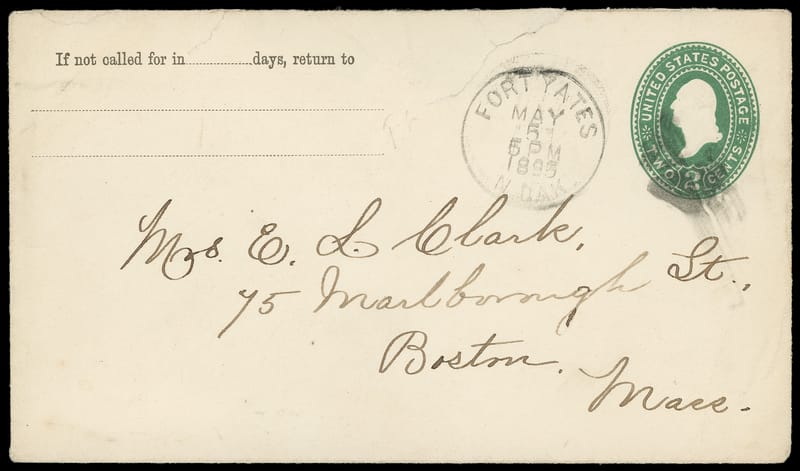 If not called for in..............days, return to
FORT YATES
MAY
5
5 PM
1895
N. DAK.
UNITED STATES POSTAGE
TWO 2 CENTS
Mrs. E. L. Clark,
75 Marlborough St.,
Boston.
Mass.